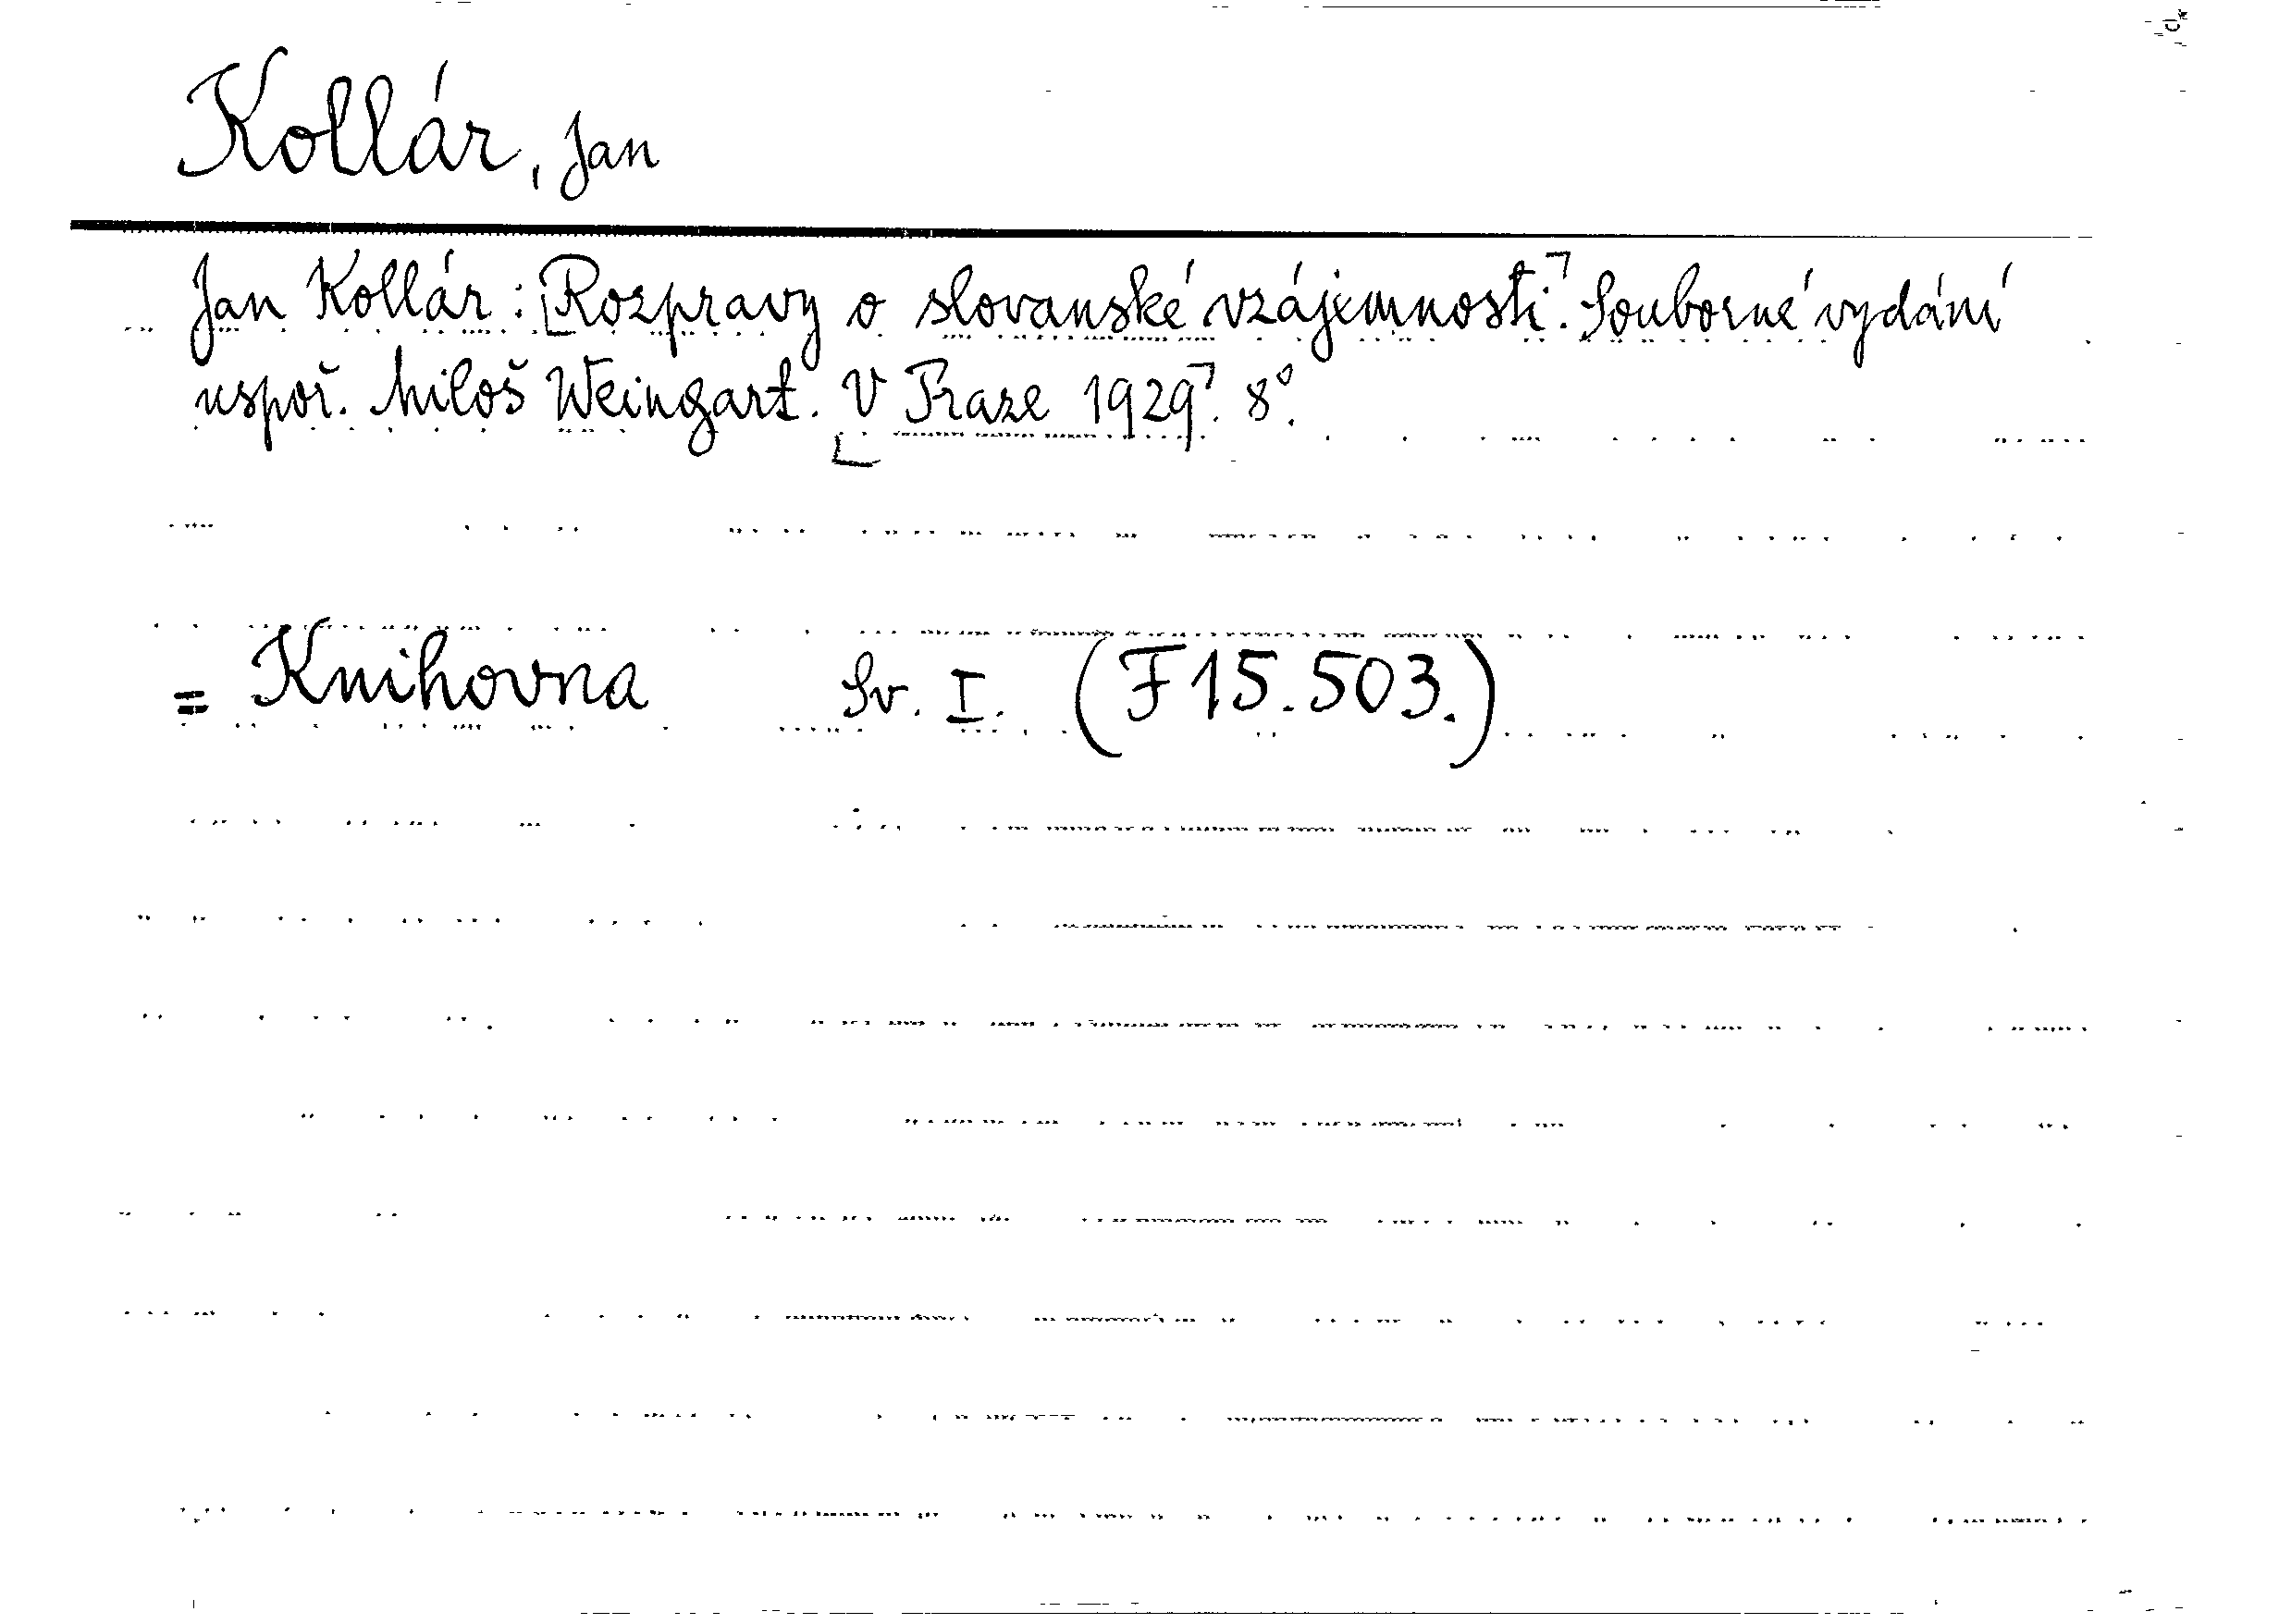 Kollár, Jan
Jan Kollár: [Rozpravy o slovanské vzájemnosti]. Souborné vydání
uspoř. Miloš Weingart. [V Praze 1929]. 8°.
= Knihovna Sv. I. (F 15.503.)